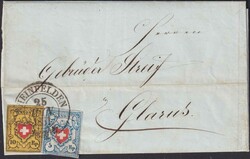 Herren
Gebrüder Streif
Glarus
RHEINFELDEN
25
10 Rp
5 Rp